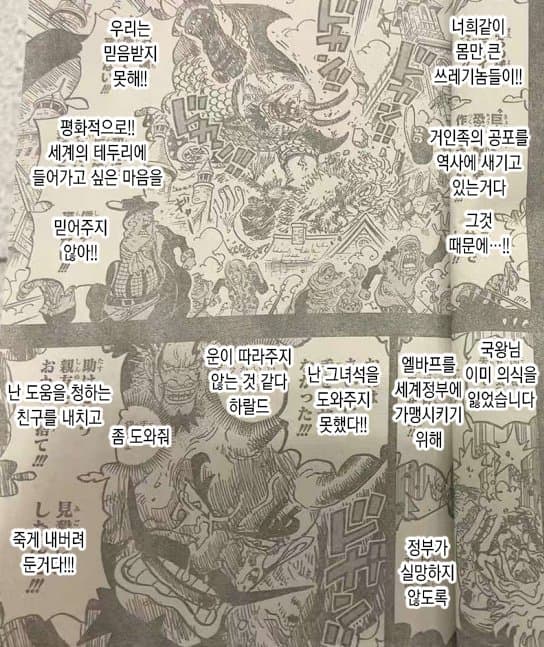 너희같이
몸만 큰
쓰레기놈들이!!
거인족의 공포를
역사에 새기고
있는거다
그것
때문에…!!
우리는
믿음받지
못해!!
평화적으로!!
세계의 테두리에
들어가고 싶은 마음을
믿어주지
않아!!
국왕님
이미 의식을
잃었습니다
엘바프를
세계정부에
가맹시키기
위해
정부가
실망하지
않도록
난 그녀석을
도와주지
못했다!!
운이 따라주지
않는 것 같다
하랄드
좀 도와줘
난 도움을 청하는
친구를 내치고
죽게 내버려
둔거다!!!